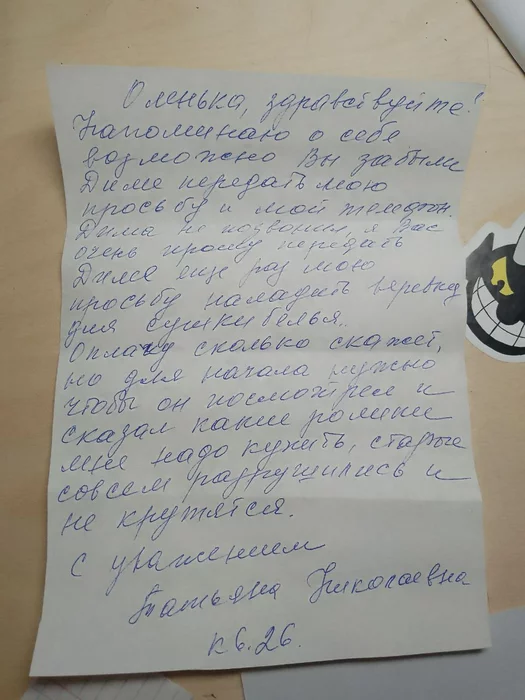 Оленька, здравствуйте!
Напоминаю о себе
возможно Вы забыли
Диме передать мою
просьбу и мой телефон.
Дима не позвонил, я Вас
очень прошу передать
Диме еще раз мою
просьбу наладить веревки
для сушки белья.
Оплачу сколько скажет,
но для начала нужно
чтобы он посмотрел и
сказал какие ролики
мне надо купить, старые
совсем разрушились и
не кружятся.
С уважением
Татьяна Николаевна
К6.26.